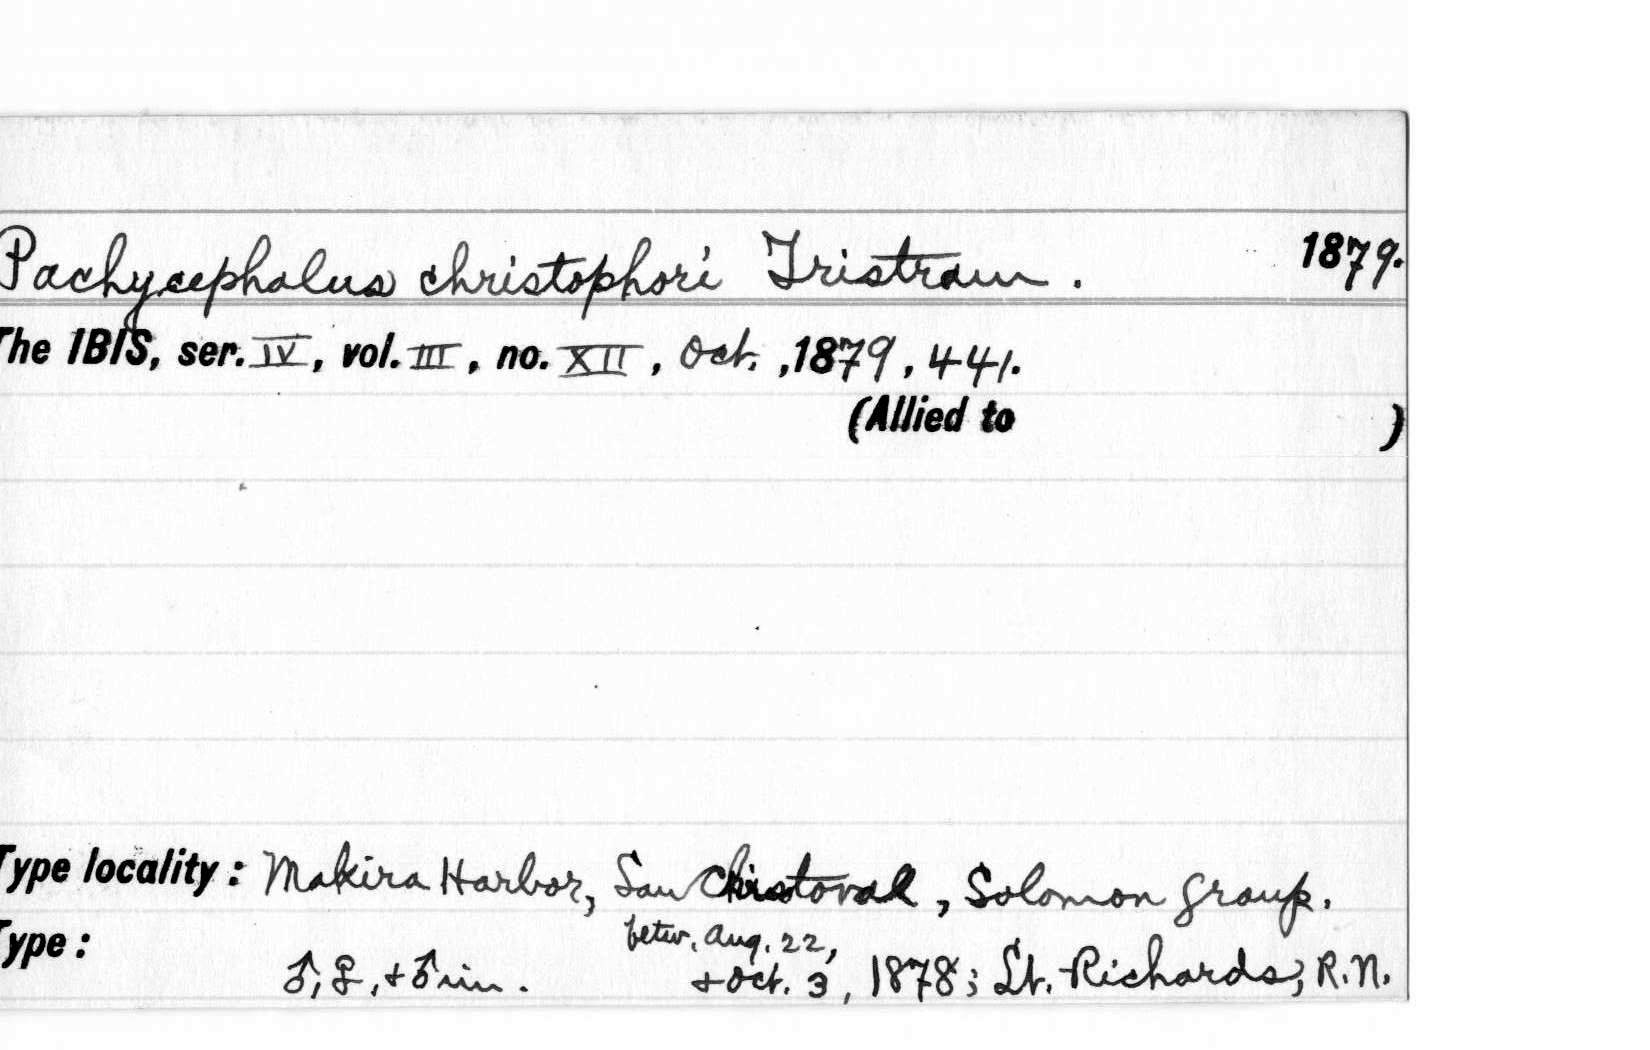 Pachycephalus christophori Tristram. 1879.
The IBIS, ser. IV, vol. III, no. XII, Oct., 1879, 441.
(Allied to )
Type locality: Makira Harbor, San Christoval, Solomon group.
Type: betw. Aug. 22,
♂, ♀, + ♂ im. + Oct. 3, 1878; Lt. Richards, R.N.